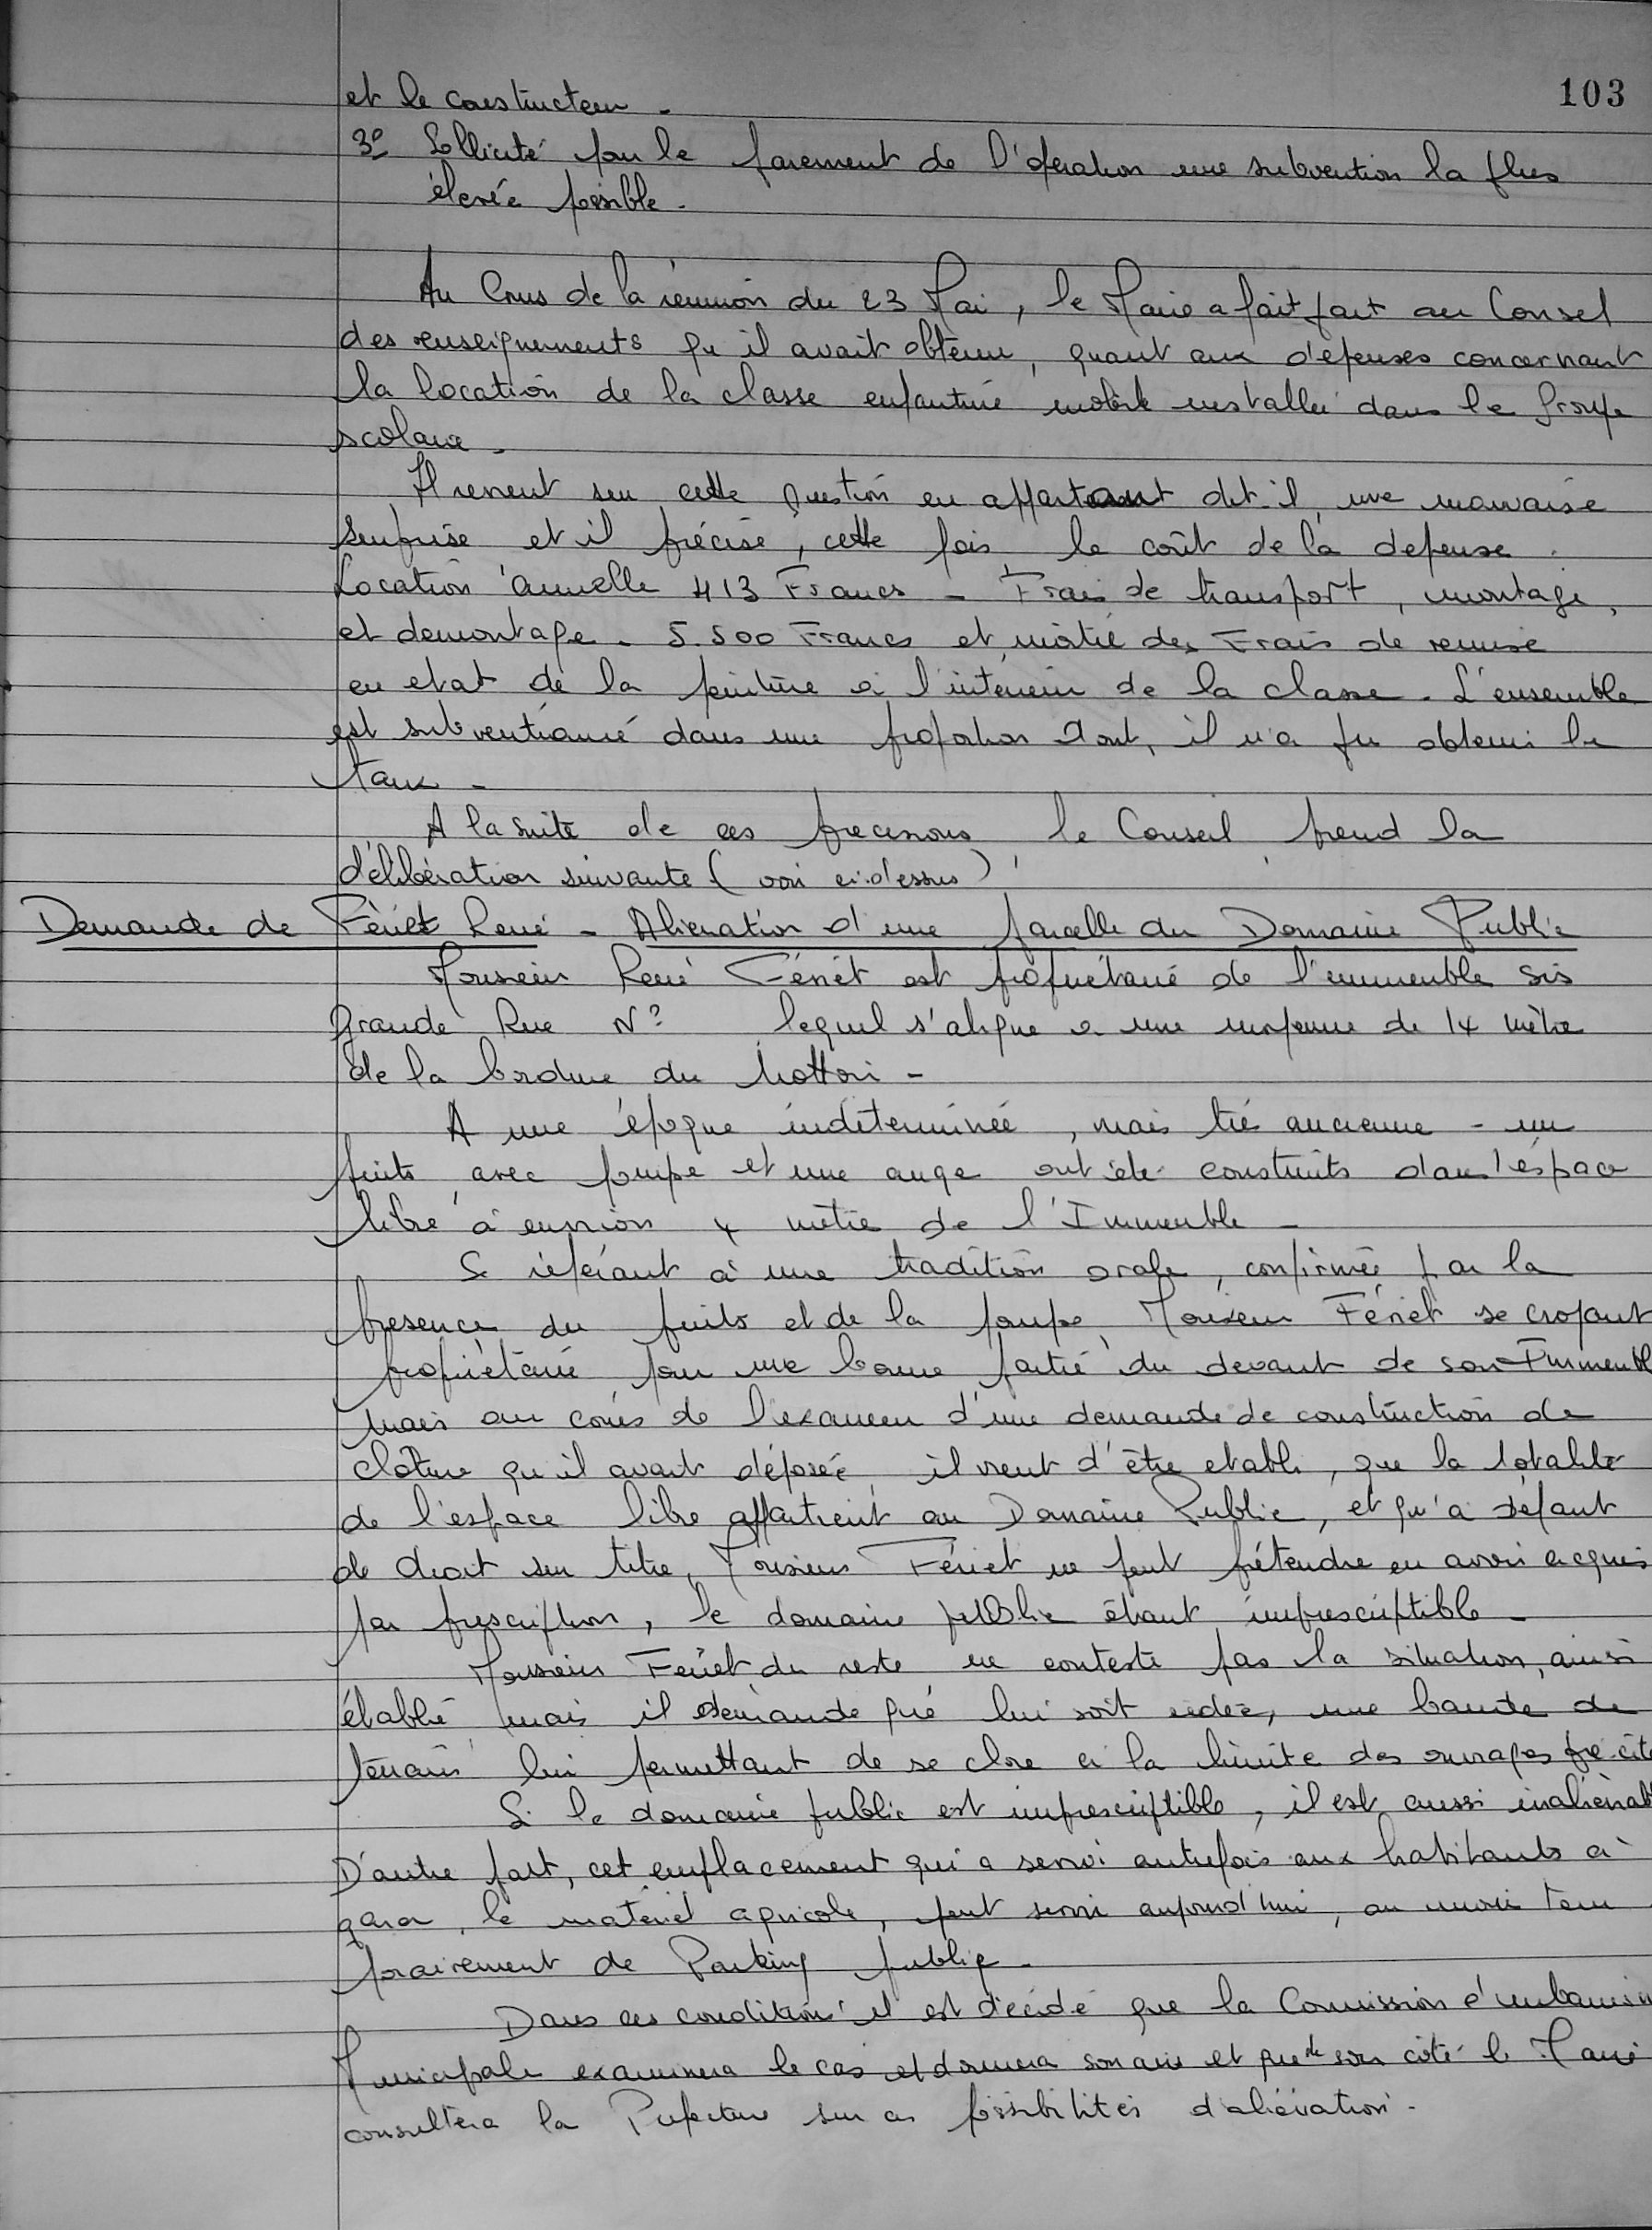 103
et le constructeur -
3º Sollicite pour le paiement de l'opération une subvention la plus
élevée possible -
Au Cours de la réunion du 23 Mai, le Maire a fait part au Conseil
des renseignements qu'il avait obtenu, quant aux dépenses concernant
la location de la classe enfantine mobile installée dans le groupe
scolaire -
Il revient sur cette question en apportant dit-il, une mauvaise
surprise et il précise, cette fois le coût de la depense.
Location annuelle 413 Francs - Frais de transport, montage,
et demontage - 5.500 Francs et moitié des Frais de remise
en etat de la peinture à l'intérieur de la classe - L'ensemble
est subventionné dans une proportion dont, il n'a pu obtenir le
taux -
A la suite de ces precisions le Conseil prend la
délibération suivante (voir ci-dessus)
Demande de Fériet René - Alienation d'une parcelle du Domaine Public
Monsieur René Fériet est propriétaire de l'immeuble sis
Grande Rue Nº lequel s'aligne a une moyenne de 14 mètre
de la bordure du trottoir -
A une époque indéterminée, mais tré ancienne - un
puits avec pompe et une auge ont été construits dans l'espace
libre à environ 4 mètre de l'Immeuble -
Se référant à une tradition orale, confirmée par la
presence du puits et de la pompe, Monsieur Fériet se croyant
propriétaire pour une bonne partie du devant de son Immeuble
mais au cours de l'examen d'une demande de construction de
clôture qu'il avait déposée, il vient d'être etabli, que la totalité
de l'espace libre appartient au Domaine Public, et qu'à défaut
de droit sur titre, Monsieur Fériet ne peut prétendre en avoir acquis
par prescription, le domaine public étant imprescriptible -
Monsieur Fériet du reste ne conteste pas la situation, ainsi
établie mais il demande que lui soit cédée, une bande de
terrain lui permettant de se clore à la limite des ouvrages pre-cité
Si le domaine public est imprescriptible, il est aussi inaliénabl
D'autre part, cet emplacement qui a servi autrefois aux habitants à
garer, le matériel agricole, peut servir aujourd'hui, au moins tem
porairement de Parking public -
Dans ces conditions il est décidé que la Commission d'urbanism
Municipale examinera le cas et donnera son avis et que de son côté le Maire
consultera la Prefecture sur ces possibilités d'aliénation -